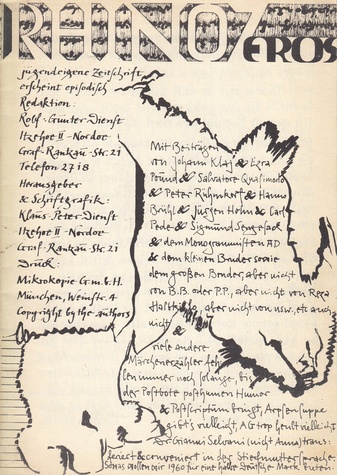 RHINOZEROS
jugendeigene Zeitschrift
erscheint episodisch
Redaktion:
Rolf-Gunter Dienst
Itzehoe II - Nordoe
Graf-Rantzau-Str. 21
Telefon 27 18
Herausgeber
& Schriftgrafik:
Klaus-Peter Dienst
Itzehoe II - Nordoe
Graf-Rantzau-Str. 21
Druck:
Mikrokopie G.m.b.H.
München, Weinstr. 4
Copyright by the authors
Mit Beiträgen
von Johann Klaj & Ezra
Pound & Salvatore Quasimodo
& Peter Rühmkorf & Hanno
Brühl & Jürgen Hohn & Carl
Pede & Sigmund
& dem Monogrammisten AD
& dem kleinen Bruder sowie
dem großen Bruder, aber nicht
von B.B. oder P.P., aber nicht von Reza
aber nicht von usw. etc auch
nicht &
viele andere
Märchenerzähler feh-
len immer noch solange, bis
der Postbote posthumen Humor
& Postscriptum bringt,
gibt's vielleicht, heult vielleicht
Gianni Selvani (nicht
in der Stiefmuttersprache.
wollen wir 1960 für eine halbe Mark bieten.